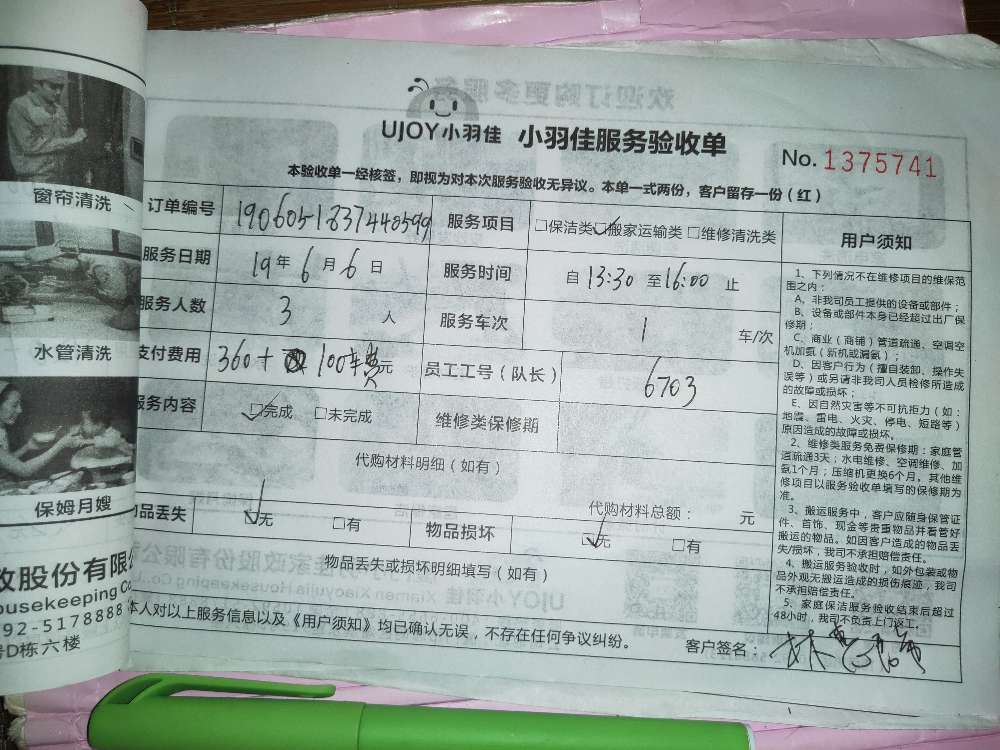 窗帘清洗
水管清洗
保姆月嫂
股份有限
ousekeeping Co
92-5178888
D栋六楼
欢迎订购更多服务
UJOY小羽佳 小羽佳服务验收单
No. 1375741
本验收单一经核签，即视为对本次服务验收无异议。本单一式两份，客户留存一份（红）
订单编号 1906051837448599 服务项目 □保洁类 □搬家运输类 □维修清洗类
服务日期 19年6月6日 服务时间 自13:30至16:00止
服务人数 3 人 服务车次 1 车/次
支付费用 360+ 100车费元 员工工号（队长） 6703
服务内容 □完成 □未完成 维修类保修期
代购材料明细（如有）
代购材料总额： 元
物品丢失 □无 □有 物品损坏 □无 □有
物品丢失或损坏明细填写（如有）
本人对以上服务信息以及《用户须知》均已确认无误，不存在任何争议纠纷。
客户签名：
用户须知
1、下列情况不在维修项目的维保范
围之内：
A、非我司员工提供的设备或部件；
B、设备或部件本身已经超过出厂保
修期；
C、商业（商铺）管道疏通、空调空
机加氨（新机或漏氨）；
D、因客户行为（擅自装卸、操作失
误等）或另请非我司人员检修所造成
的故障或损坏；
E、因自然灾害等不可抗拒力（如：
地震、雷电、火灾、停电、短路等）
原因造成的故障或损坏。
2、维修类服务免费保修期：家庭管
道疏通3天；水电维修、空调维修、加
氨1个月；压缩机更换6个月。其他维
修项目以服务验收单填写的保修期为
准。
3、搬运服务中，客户应随身保管证
件、首饰、现金等贵重物品并看管好
搬运的物品。如因客户造成的物品丢
失/损坏，我司不承担赔偿责任。
4、搬运服务验收时，如外包装或物
品外观无搬运造成的损伤痕迹，我司
不承担赔偿责任。
5、家庭保洁服务验收结束后超过
48小时，我司不负责上门返工。